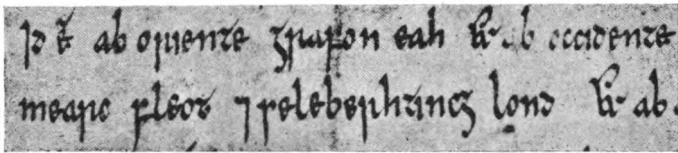 Id ē ab oriente grafon eah & ab occidente
mearc fleot ⁊ seleberhting lond & ab